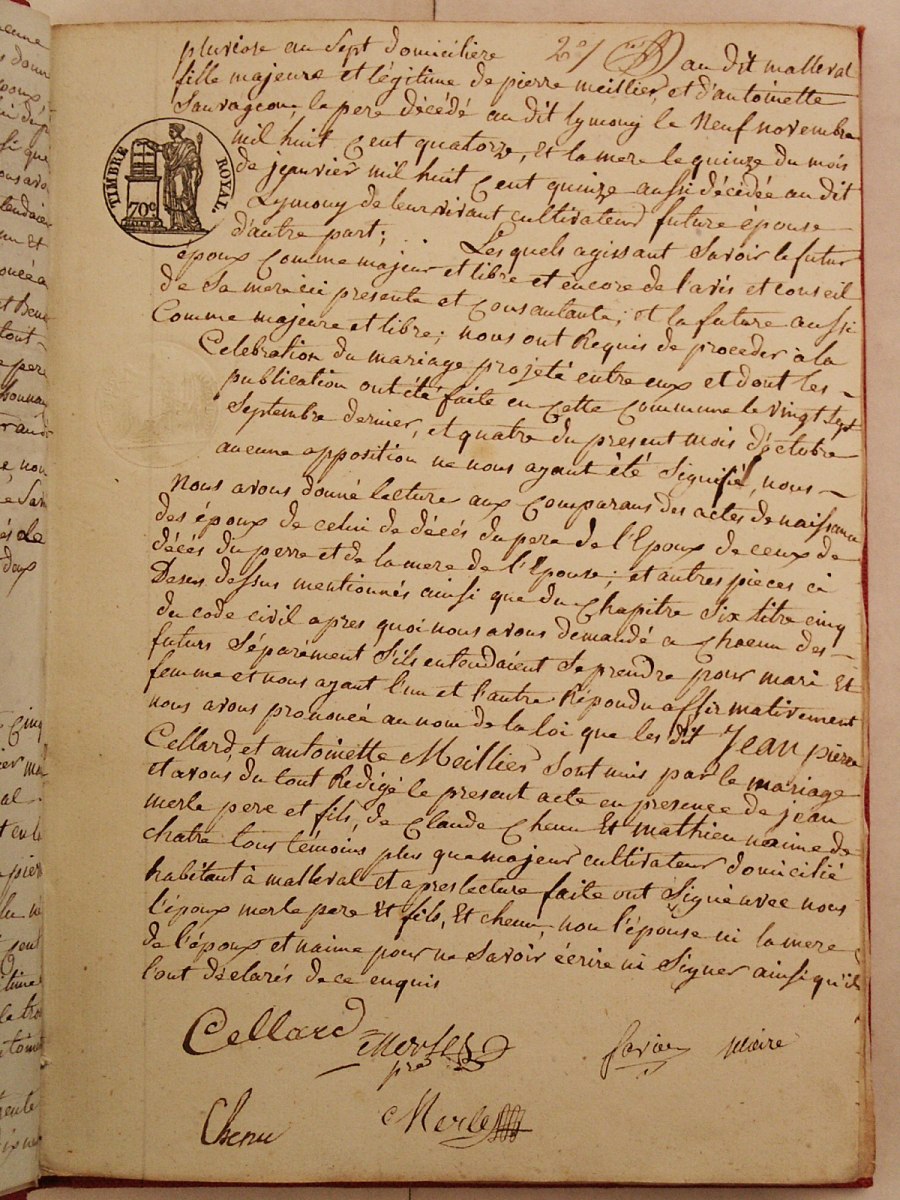 2e/
pluviose an sept domiciliée au dit malleval
fille majeure et légitime de pierre meillier, et d'antoinette
Sauvageon, le pere décédé au dit lymony le Neuf novembre
mil huit Cent quatorze, Et la mere le quinze du mois
de janvier mil huit Cent quinze aussi décédée au dit
Lymony de leur vivant cultivateur future epouse
d'autre part; Lesquels agissant Savoir le futur
époux Comme majeur et libre et encore de l'avis et conseil
de Sa mere ici presente et Consantante; et la future aussi
Comme majeure et libre; nous ont Requis de proceder à la
Celebration du mariage projeté entre eux et dont les
publication ont été faite en Cette Commune le vingt sept
Septembre dernier, et quatre du present mois d'octobre
aucune apposition ne nous ayant été Signifié, nous
Nous avons donné lecture aux Comparans des actes de naissance
des époux de celui de décés du pere de l'Epoux de ceux de
décés du perre et de la mere de l'Epouse; et autres pièces ci
Desus dessus mentionnés ainsi que du Chapitre Six titre cinq
du code civil apres quoi nous avons demandé a Chacun des
futurs Séparément S'ils entendaient Se prendre pour mari Et
femme et nous ayant l'un et l'autre Répondu affirmativement
nous avons prononcé au nom de la loi que les dit Jean pierre
Cellard, et antoinette Meillier Sont unis par le mariage
et avons du tout Redigé le present acte en presence de jean
merle pere et fils, de Claude Chenu Et mathieu naime de
chatre tous témoins plus que majeur cultivateur domicilié
habitant à malleval et apres lecture faite ont Signé avec nous
l'époux merle pere Et fils, Et chenu, non l'épouse ni la mere
de l'époux et naime pour ne Savoir écrire ni Signer ainsi qu'ils
l'ont déclarés de ce enquis
TIMBRE ROYAL.
70c
Cellard Merle maire
pre
Chenu Merle